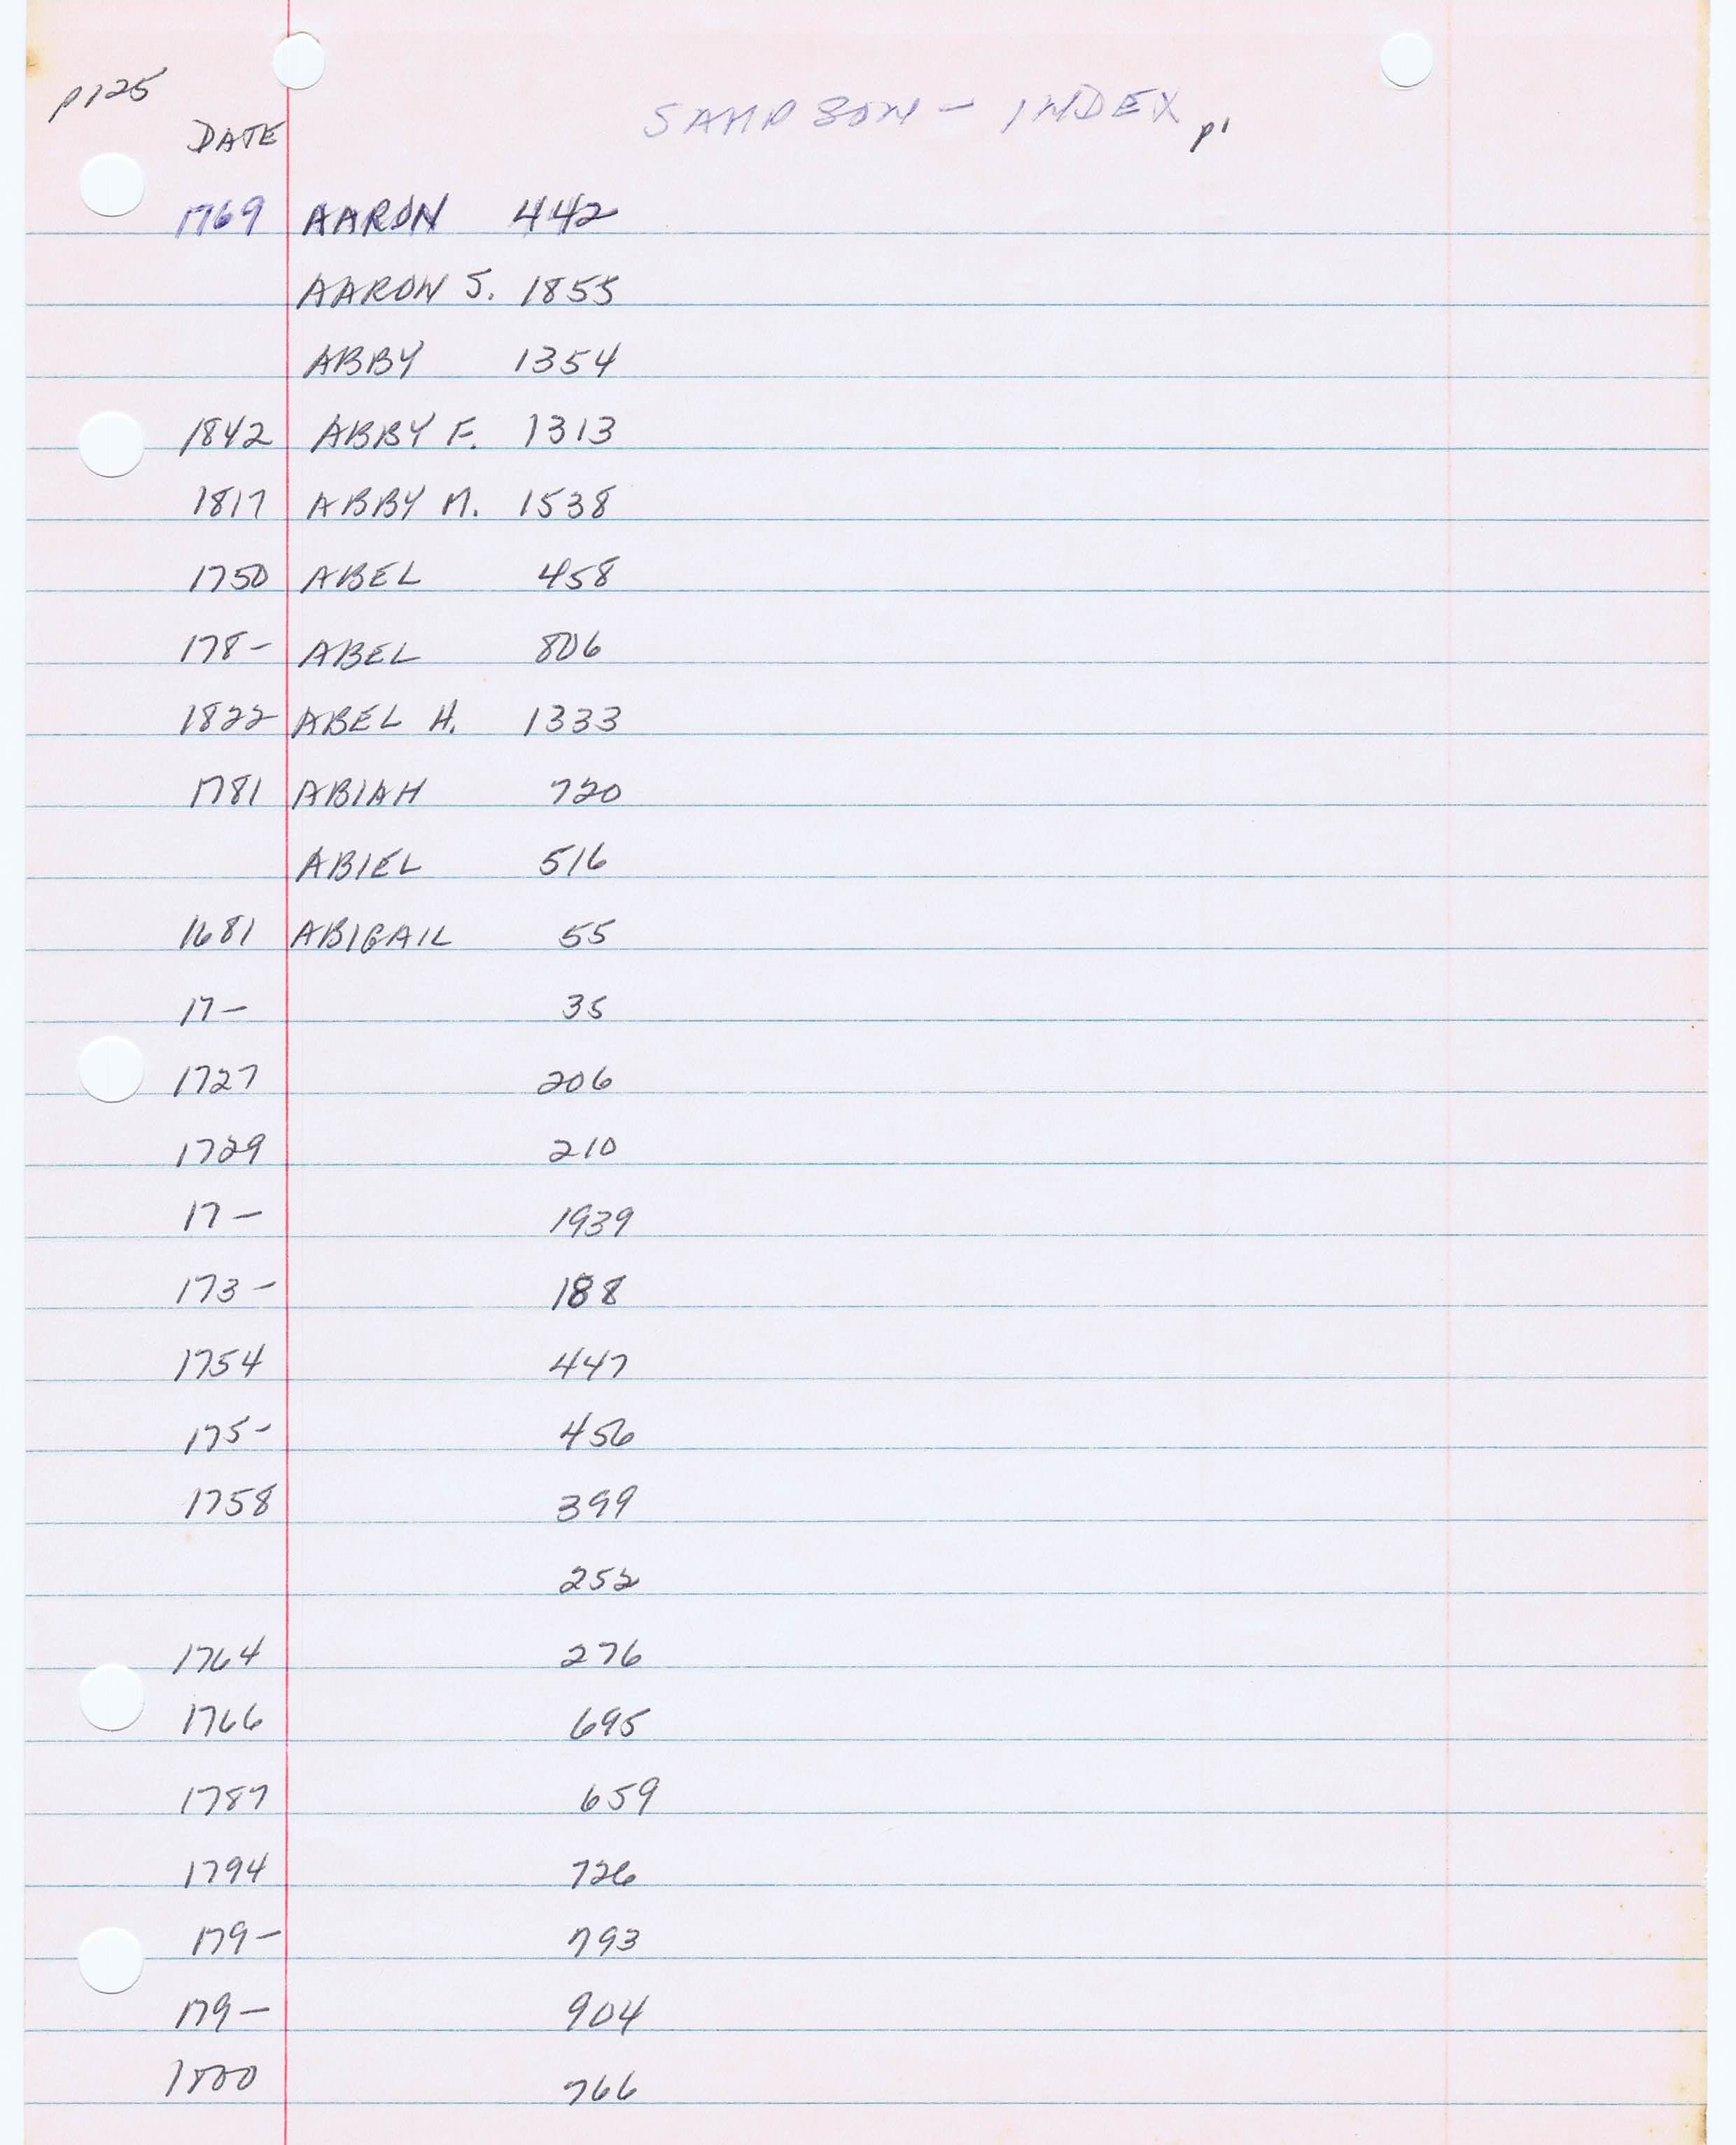 p125
SAMPSON - INDEX p1
DATE
1769 AARON 442
AARON S. 1855
ABBY 1354
1842 ABBY F. 1313
1817 ABBY M. 1538
1750 ABEL 458
178- ABEL 806
1822 ABEL H. 1333
1781 ABIAH 720
ABIEL 516
1681 ABIGAIL 55
17- 35
1727 206
1729 210
17- 1939
173- 188
1754 447
175- 456
1758 399
252
1764 276
1766 695
1787 659
1794 726
179- 793
179- 904
1800 766